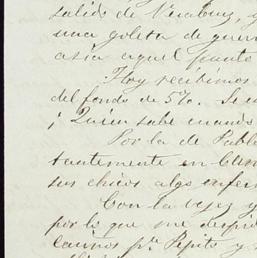 salido de Veracruz, y
una goleta de guerr
asia aquel punto
Hoy recibimos
del fondo de 5%. Se es
¡Quien sabe cuando
Por la de Pabl
tantemente en Cür
sus chicos algo enfer
Con la vejez y
por lo que me despid
cariños pa. Pepito y